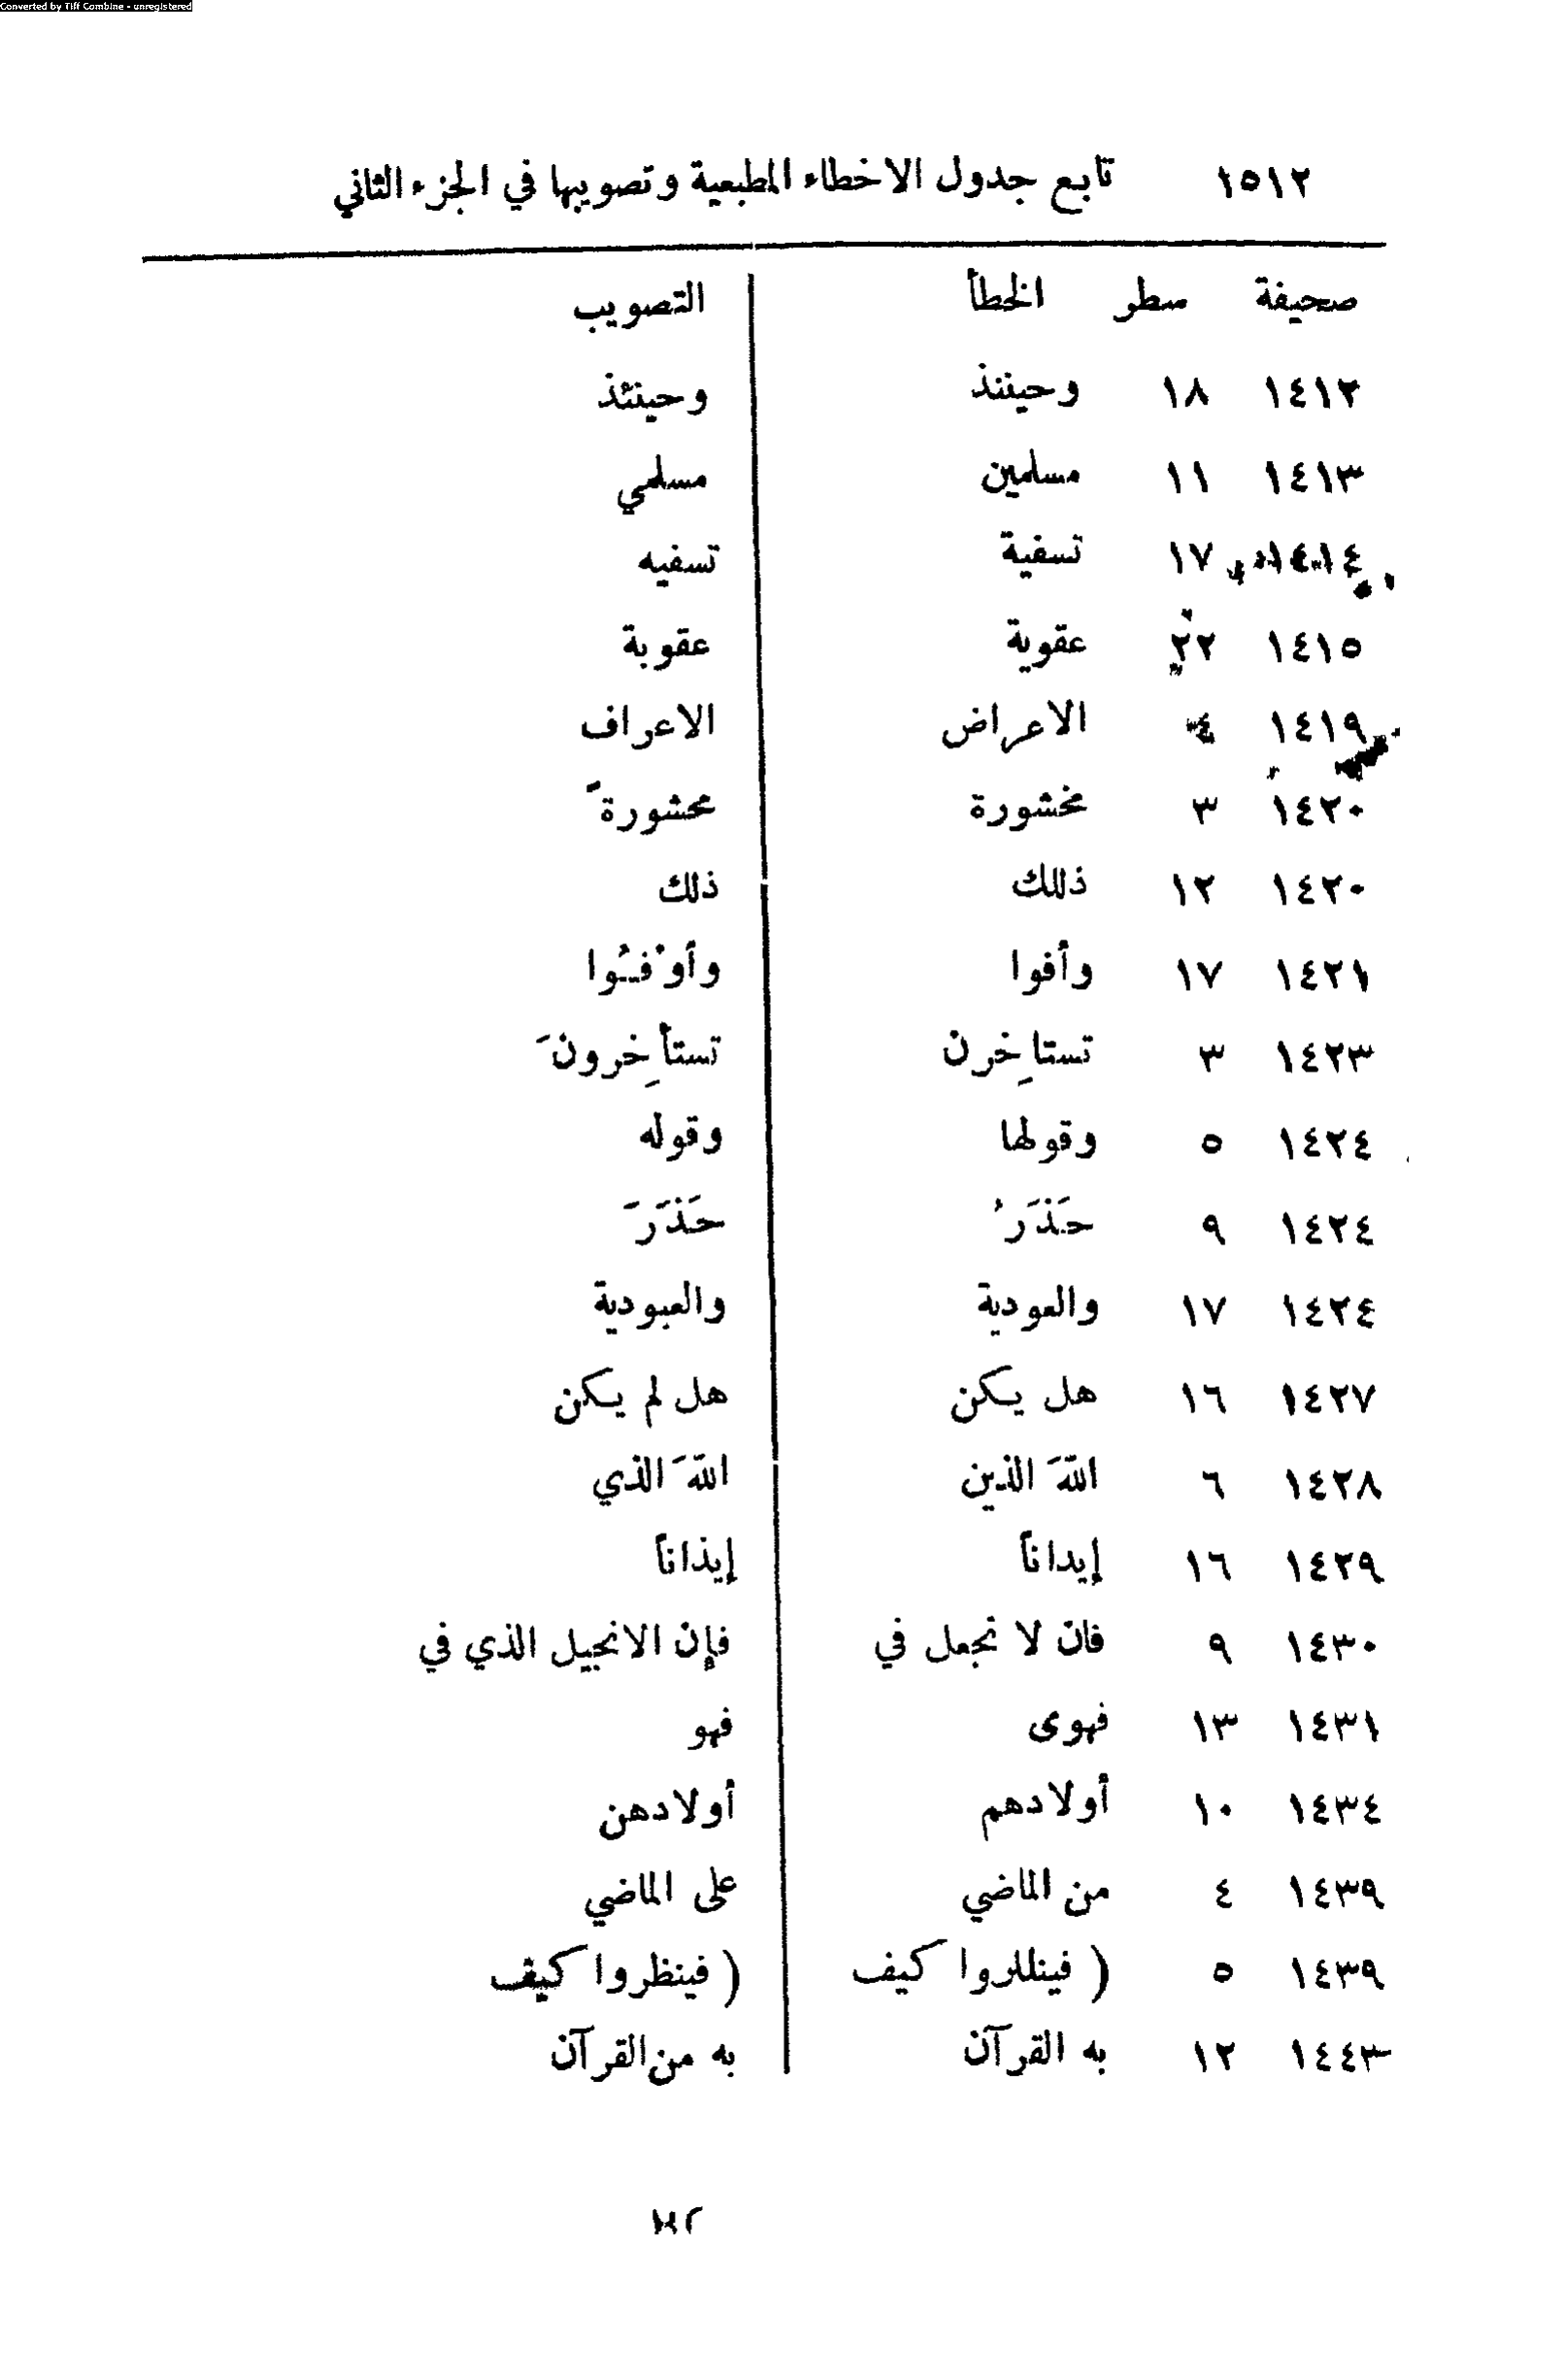 Converted by Tiff Combine - unregistered
١٥١٢ تابع جدول الاخطاء المطبعية وتصويبها في الجزء الثاني
صحيفة سطر الخطأ التصويب
١٤١٢ ١٨ وحيننذ وحينئذ
١٤١٣ ١١ مسلمين مسلمي
١٤١٤ ١٧ تسفية تسفيه
١٤١٥ ٢٢ عقوية عقوبة
١٤١٩ ٤ الاعراض الاعراف
١٤٢٠ ٣ مخشورة محشورةً
١٤٢٠ ١٢ ذللك ذلك
١٤٢١ ١٧ وأفوا وأوْفُوا
١٤٢٣ ٣ تستاخِرن تستأخِرونَ
١٤٢٤ ٥ وقولها وقوله
١٤٢٤ ٩ حَذَرُ حَذَرَ
١٤٢٤ ١٧ والعودية والعبودية
١٤٢٧ ١٦ هل يكن هل لم يكن
١٤٢٨ ٦ اللّهَ الذين اللّهَ الذي
١٤٢٩ ١٦ إيداناً إيذاناً
١٤٣٠ ٩ فان لا نجعل في فإن الانجيل الذي في
١٤٣١ ١٣ فهوى فهو
١٤٣٤ ١٠ أولادهم أولادهن
١٤٣٩ ٤ من الماضي على الماضي
١٤٣٩ ٥ ( فينللروا كيف ( فينظروا كيف
١٤٤٣ ١٢ به القرآن به من القرآن